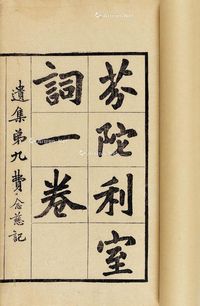 芬陀利室
詞一卷
遺集第九 費念慈記